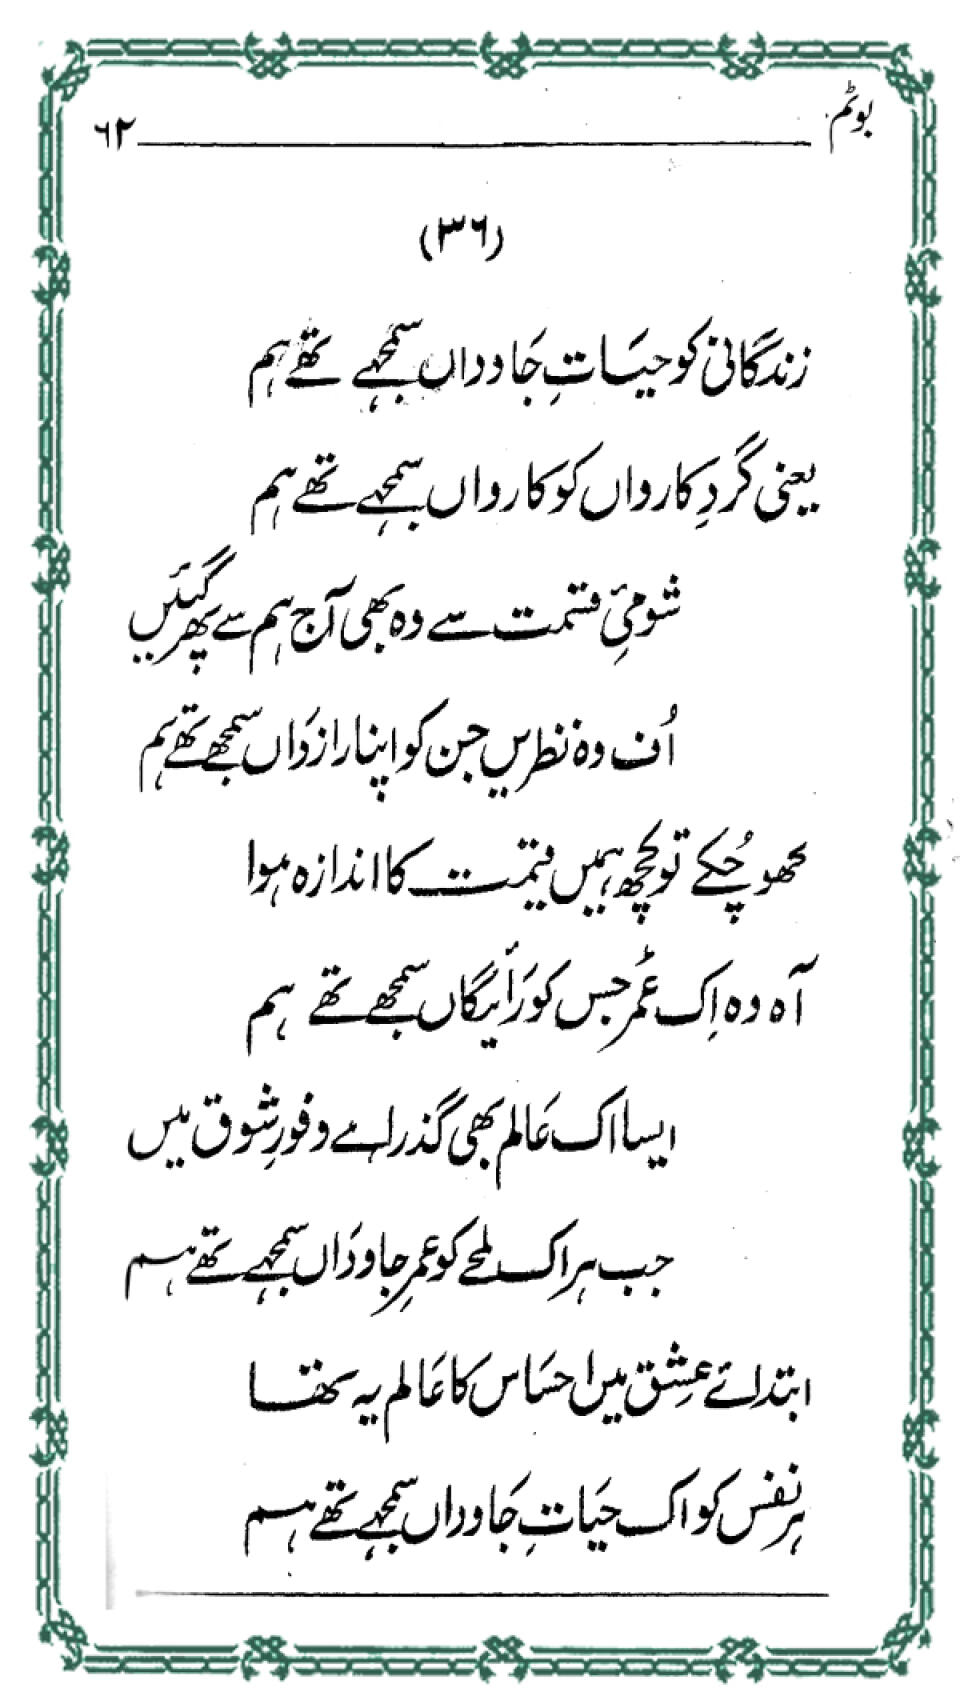 بوٹم
۶۲
(۳۶)
زندگانی کو حیاتِ جاوداں سمجہے تھے ہم
یعنی گردِ کارواں کو کارواں سمجہے تھے ہم
شومئِ قسمت سے وہ بھی آج ہم سے پھر گئیں
اُف وہ نظریں جن کو اپنا رازداں سمجھے تھے ہم
کھو چُکے تو کچھ ہمیں قیمت کا اندازہ ہوا
آہ وہ اِک عُمر جس کو رائیگاں سمجھے تھے ہم
ایسا اک عالم بھی گذرا ہے وفورِ شوق میں
جب ہر اک لمحے کو عمرِ جاوداں سمجہے تھے ہم
ابتدائے عِشق میں احساس کا عالم یہ تھا
ہر نفس کو اک حیاتِ جاوداں سمجہے تھے ہم